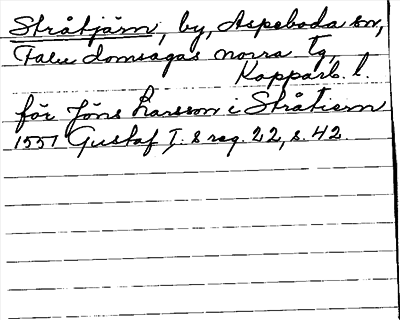 Stråtjärn, by, Aspeboda sn,
Falu domsagas norra tg,
Kopparb. l.
för Jöns Larsson i Stråtiern
1551 Gustaf I:s reg. 22, s. 42